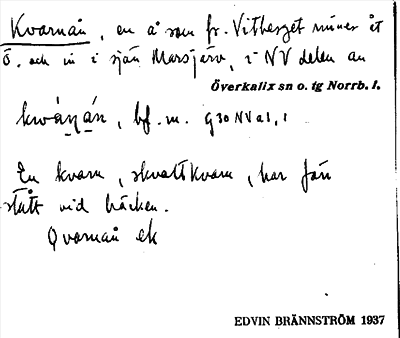 Kvarnån, en å som fr. Vitberget rinner åt
ö. och in i sjön Marsjärv, i NV delen av
Överkalix sn o. tg Norrb. l.
kwáṇáṇ, bf. m. G30NVa1,1
En kvarn, skvaltkvarn, har förr
stått vid bäcken.
Qvarnån ek
EDVIN BRÄNNSTRÖM 1937